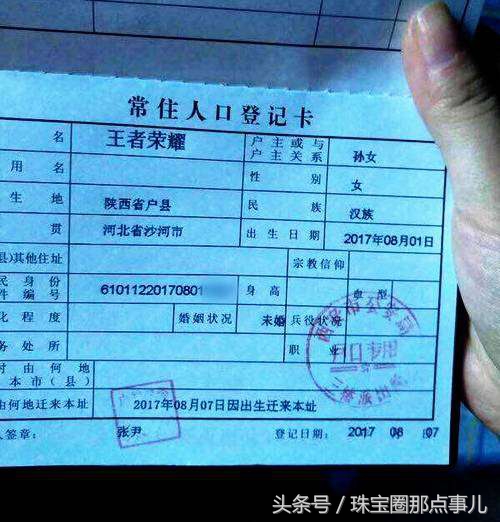 常住人口登记卡
名 王者荣耀 户主或与户主关系 孙女
用名 性别 女
生地 陕西省户县 民族 汉族
贯 河北省沙河市 出生日期 2017年08月01日
县)其他住址 宗教信仰
民身份
件编号 61011220170801 身高 血型
化程度 婚姻状况 未婚 兵役状况
务处所 职业
时由何地
本市(县)
由何地迁来本址 2017年08月07日因出生迁来本址
人签章: 张尹 登记日期: 2017 08 07
户口专用
头条号/珠宝圈那点事儿